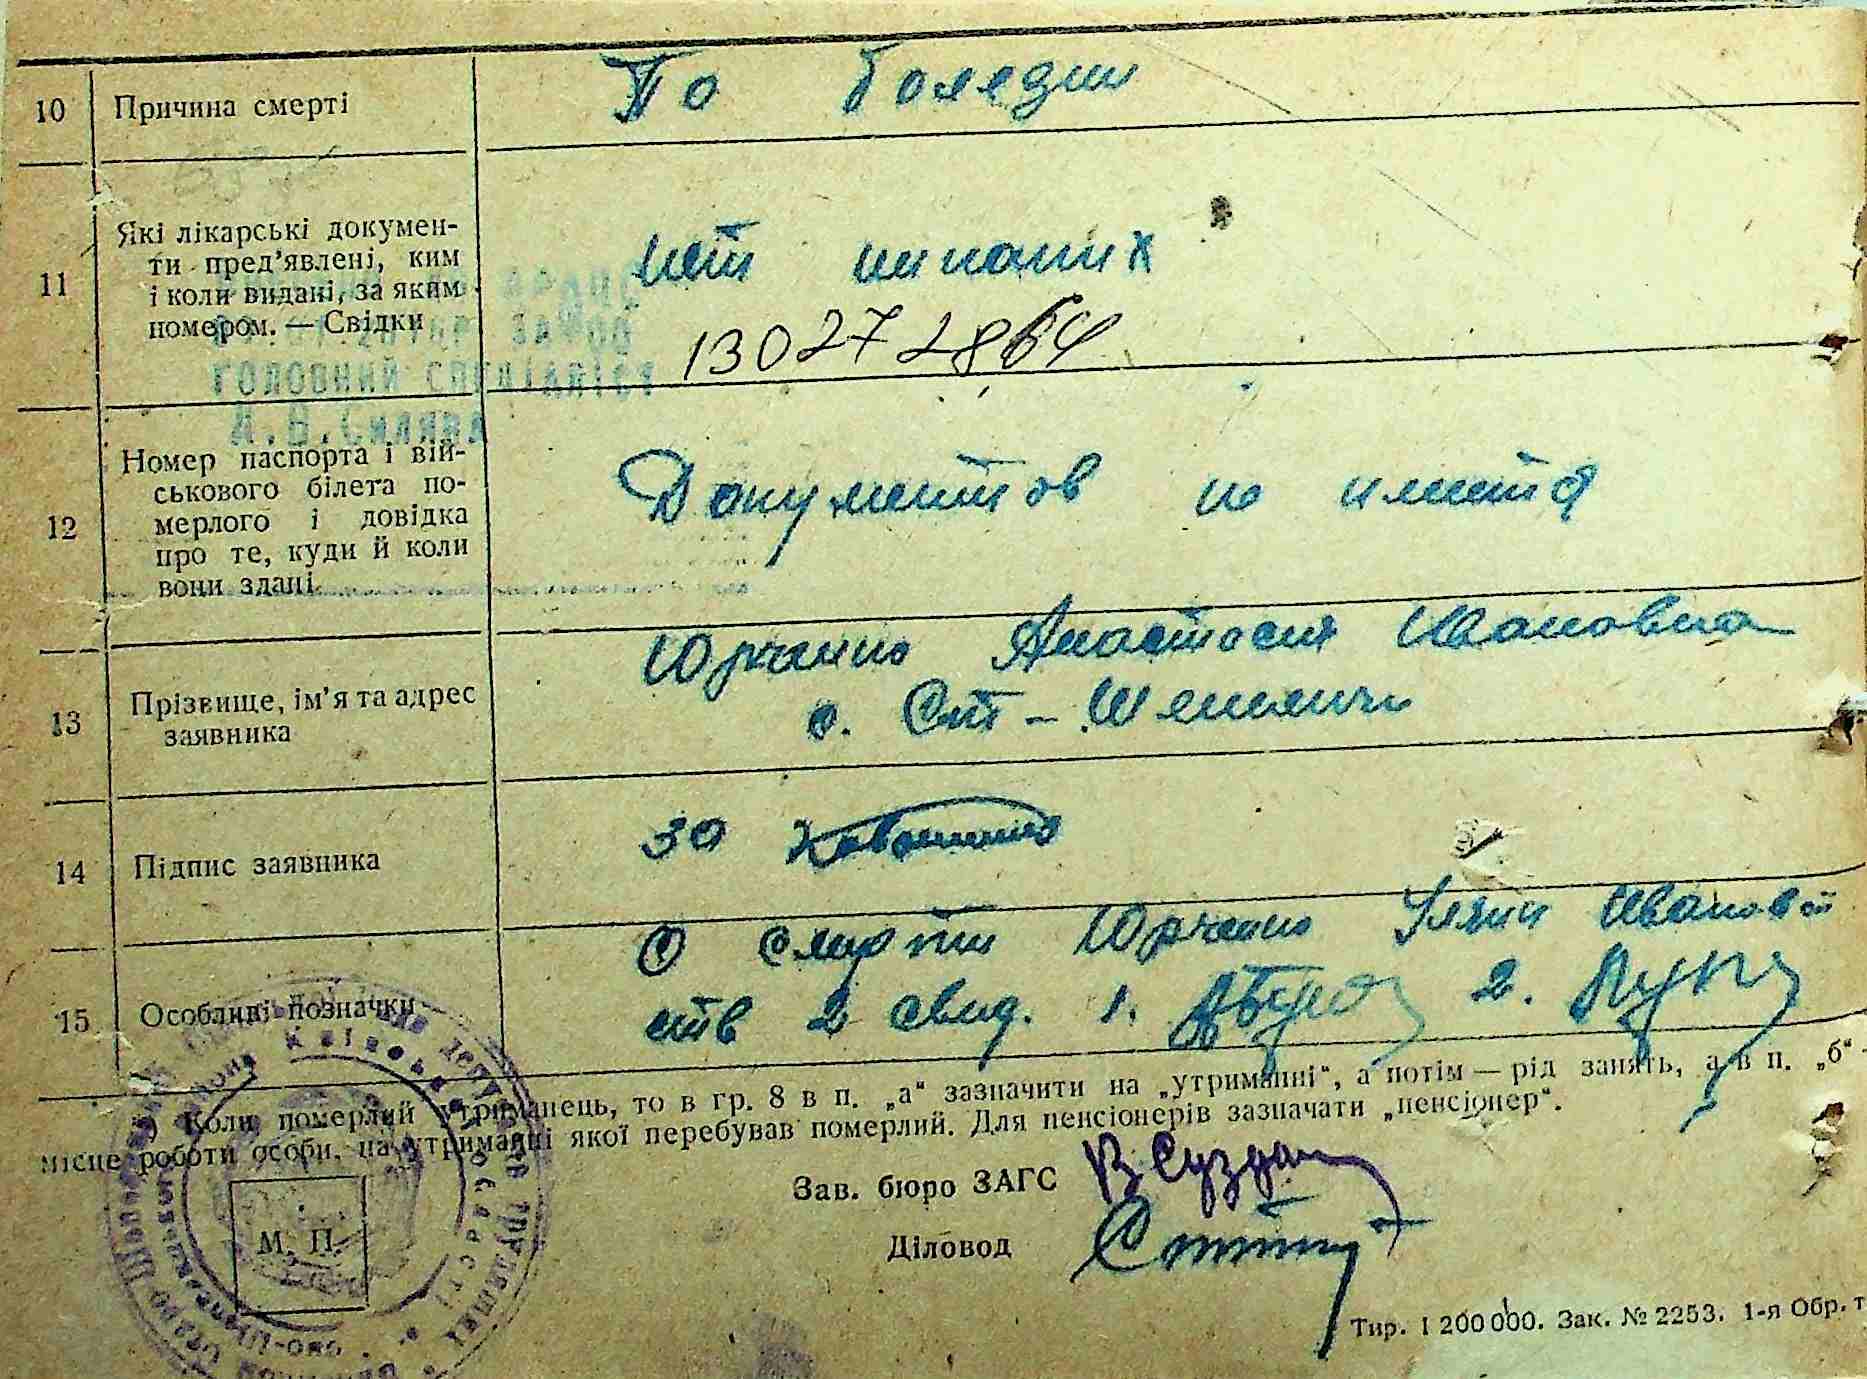 10 Причина смерті По болезни
11 Які лікарські докумен-
ти пред’явлені, ким
і коли видані, за яким
номером. — Свідки
нет никаких
130272864
головний спеціаліст
12 Номер паспорта і вій-
ськового білета по-
мерлого і довідка
про те, куди й коли
вони здані.
Документов не имется
13 Прізвище, ім’я та адрес
заявника
Юрченко Анастасия Ивановна
с. Ст - Шепеличи
14 Підпис заявника
за
15 Особливі позначки
О смерти Юрченко Ивановой
2 свид. 1. 2.
*) Коли померлий утриманець, то в гр. 8 в п. „а“ зазначити на „утриманні“, а потім — рід занять, а в п. „б“ -
місце роботи особи, на утриманні якої перебував померлий. Для пенсіонерів зазначати „пенсіонер“.
Зав. бюро ЗАГС
Діловод
М. П.
Тир. 1 200 000. Зак. № 2253. 1-я Обр. т